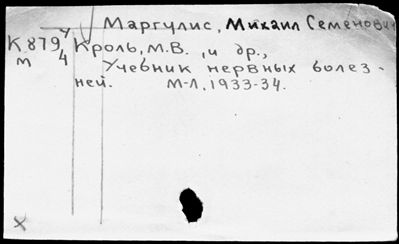 Маргулис, Михаил Семенович
К879 у Кроль, М.В., и др.,
м 4 Учебник нервных болез-
ней. М-Л, 1933-34.
х